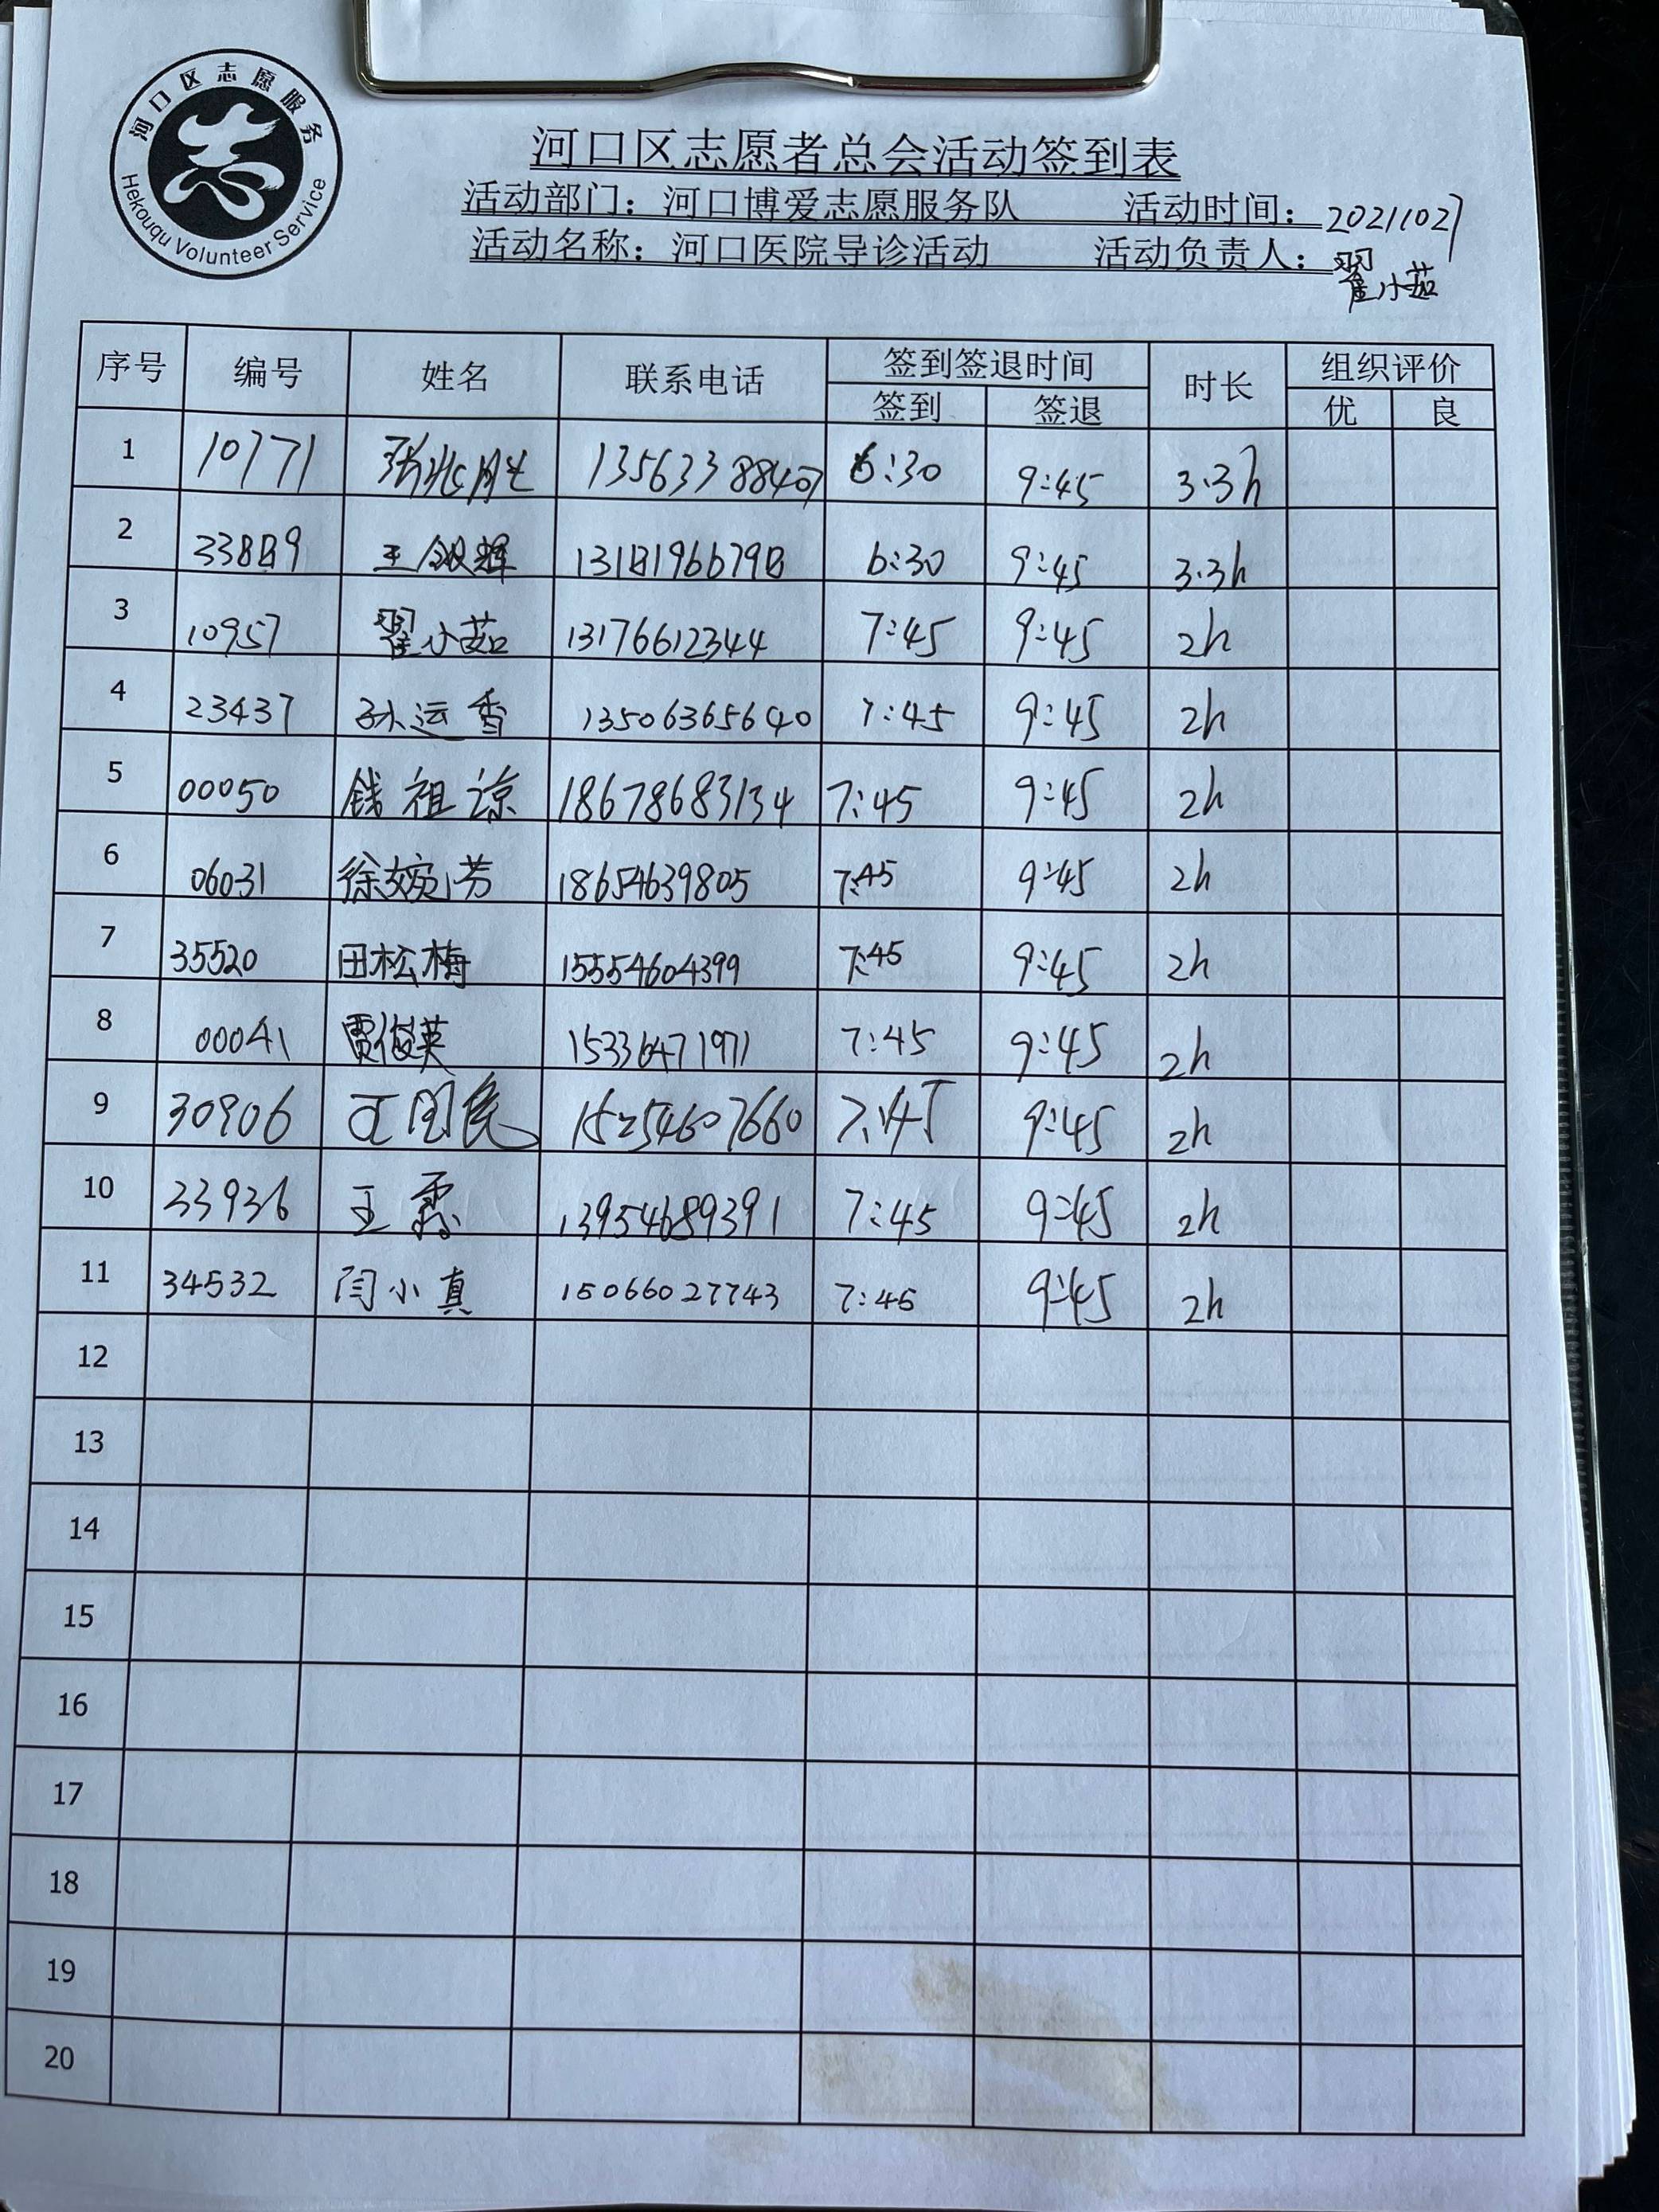 河口区志愿服务
Hekouqu Volunteer Service
河口区志愿者总会活动签到表
活动部门：河口博爱志愿服务队 活动时间：20211027
活动名称：河口医院导诊活动 活动负责人：翟小茹
序号 编号 姓名 联系电话 签到签退时间 时长 组织评价
签到 签退 优 良
1 10771 张兆胜 13563388407 6:30 9:45 3.3h
2 33889 王银辉 13181966798 6:30 9:45 3.3h
3 10957 翟小茹 13176612344 7:45 9:45 2h
4 23437 孙运香 13506365640 7:45 9:45 2h
5 00050 钱祖谅 18678683134 7:45 9:45 2h
6 06031 徐婉芳 18654639805 7:45 9:45 2h
7 35520 田松梅 15554604399 7:45 9:45 2h
8 00041 贾俊英 15336471971 7:45 9:45 2h
9 30906 15254607660 7:45 9:45 2h
10 33936 王霞 13954689391 7:45 9:45 2h
11 34532 闫小真 15066027743 7:45 9:45 2h
12
13
14
15
16
17
18
19
20